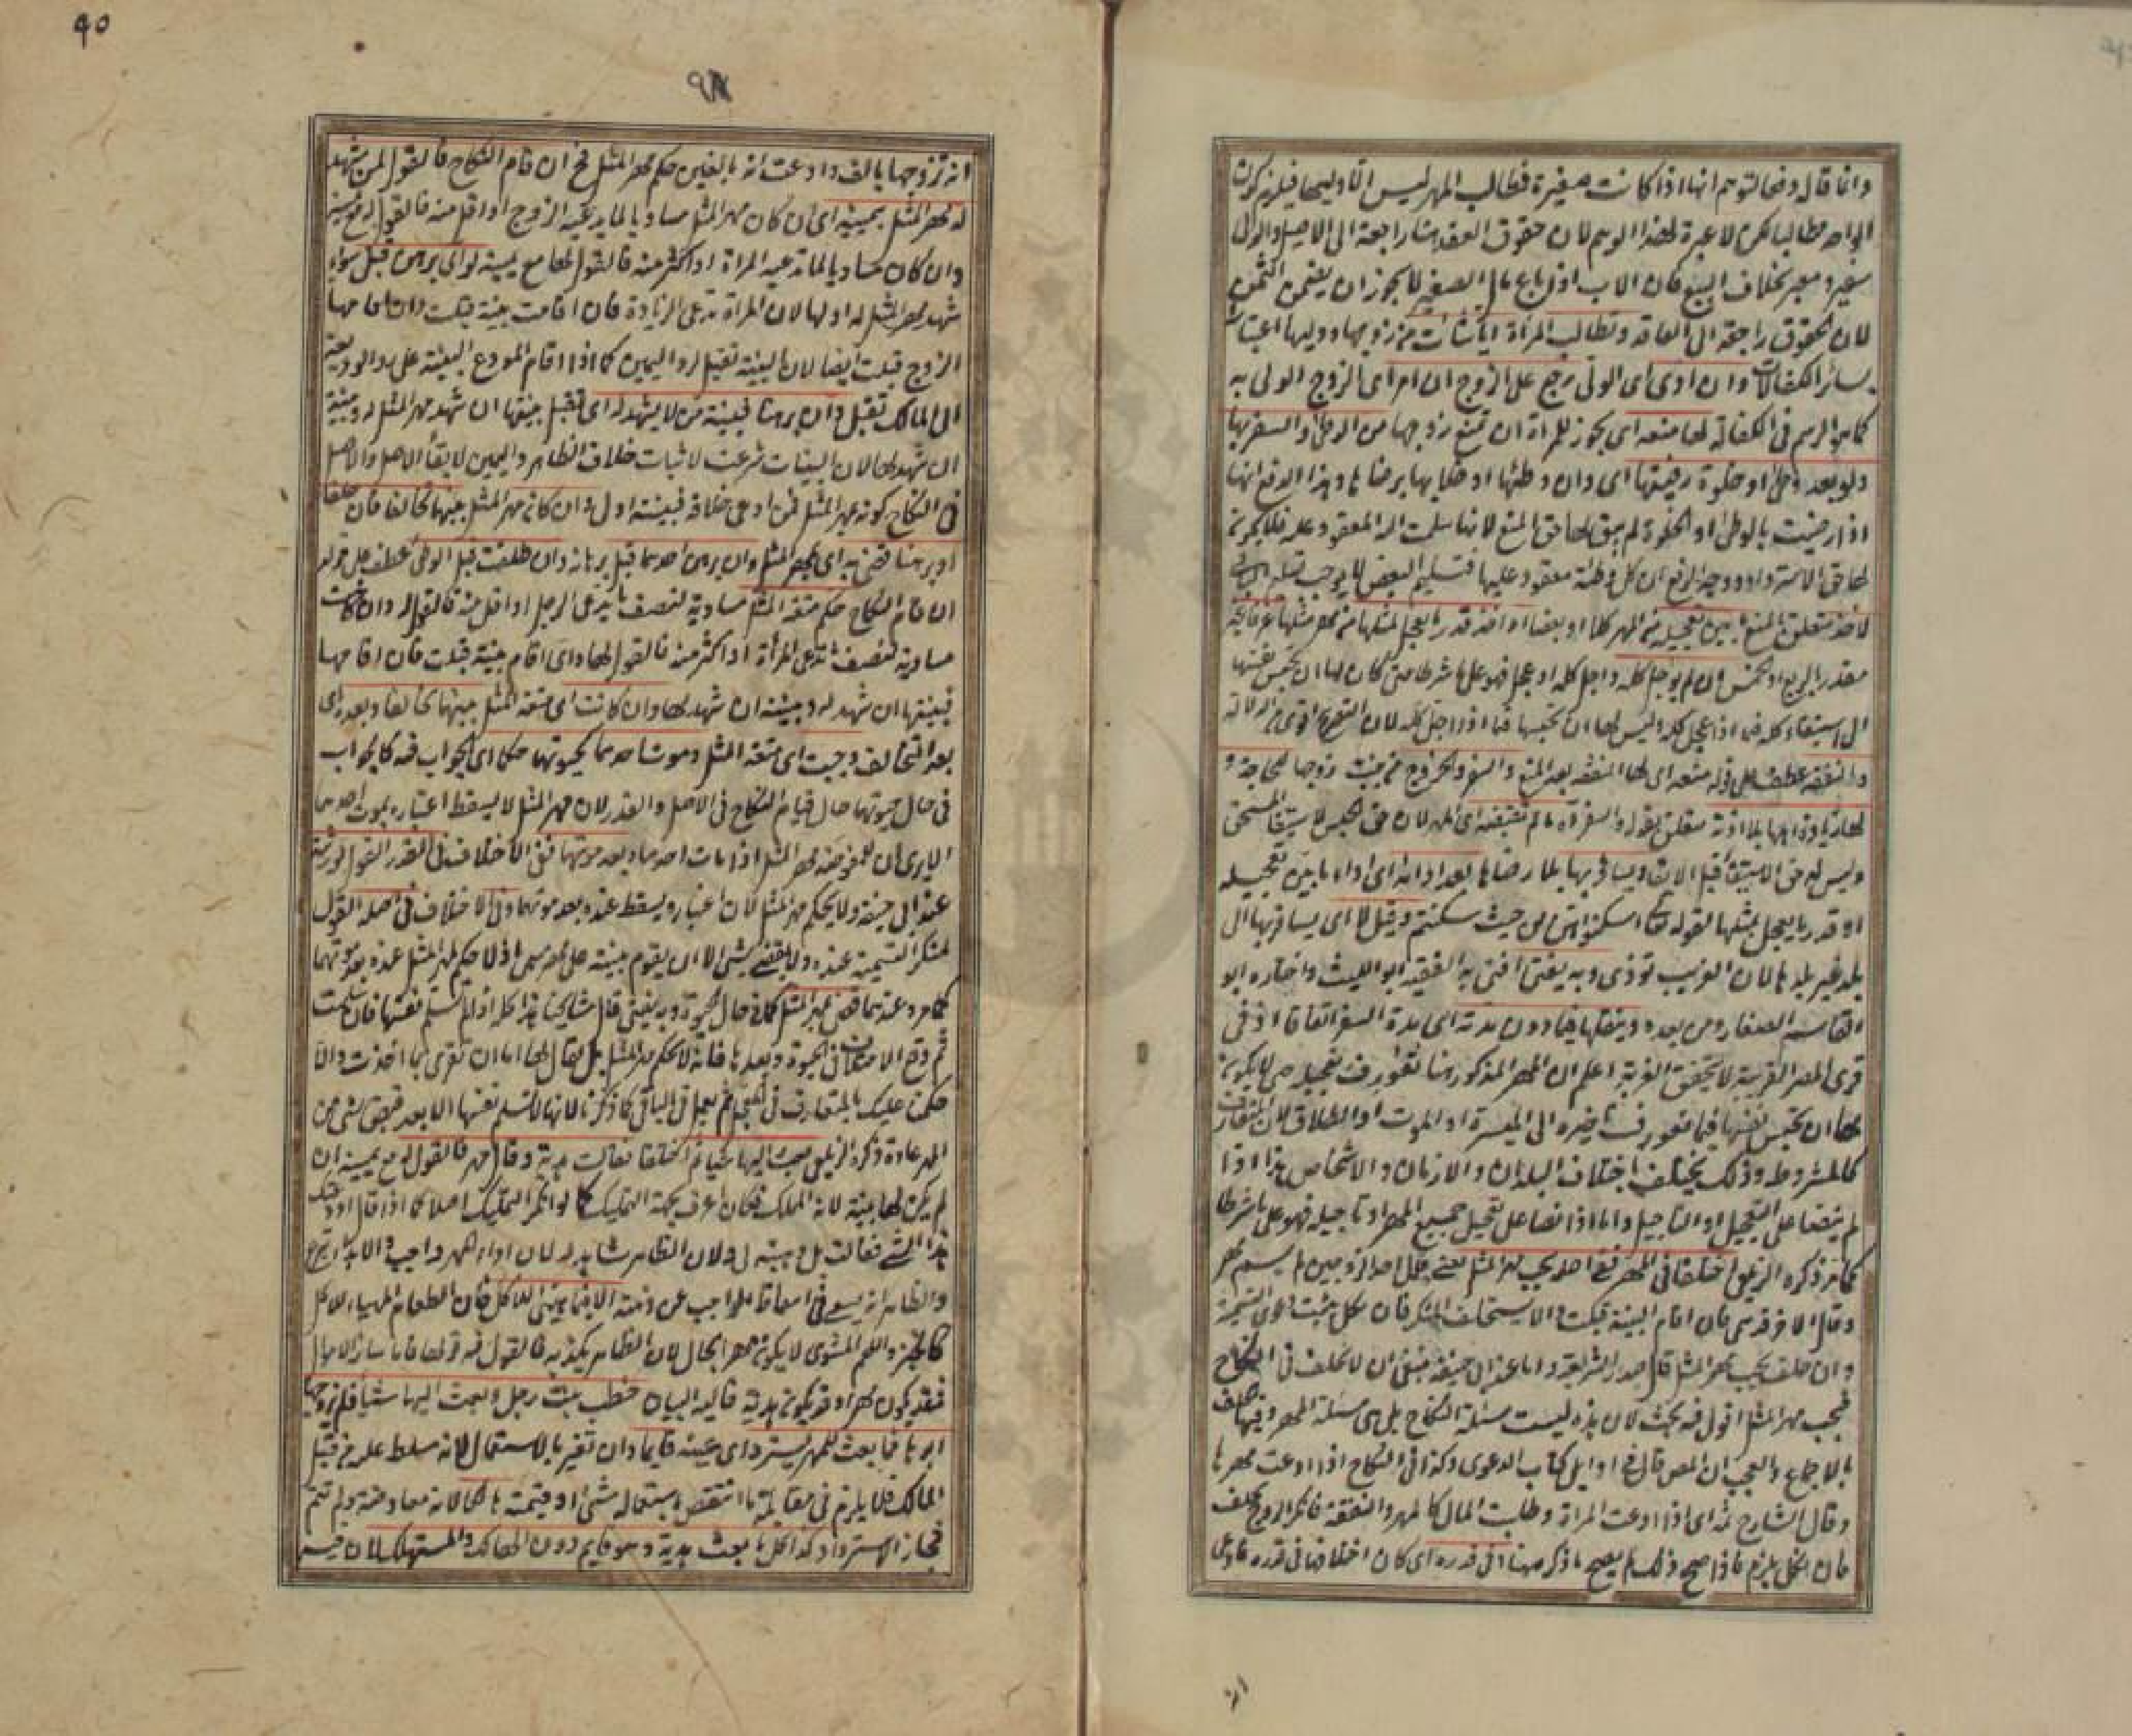 وانما قال دفعا لتوهم انها اذا كانت صغيرة فطالب المهر ليس الا وليها فيلزم كون
الواحد مطالبا لكن لا عبرة لهذا الوهم لان حقوق العقد هنا راجعة الى الاصيل والولى
سفير ومعبر بخلاف البيع فان الاب اذا باع مال الصغير لا يجوز ان يضمن الثمن
لان الحقوق راجعة الى العاقد وتطالب المرأة ايا شاءت من زوجها ووليها اعتبارا
بسائر الكفالات وان ادى اى الولى رجع على الزوج ان امر اى الزوج الولى به
كما هو الرسم فى الكفالة لها منعه اى يجوز للمرأة ان تمنع زوجها من الوطئ والسفر بها
ولو بعد وطئ او خلوة رضيتها اى وان وطئها او خلا بها برضاها وهذا لدفع انها
اذا رضيت بالوطئ او الخلوة لم يبق لها حق المنع لانها سلمت اليه المعقود عليه فلا يكون
لها حق الاسترداد ووجه الدفع ان كل وطئة معقود عليها فتسليم البعض لا يوجب تسليم الباقى
لاخذ متعلق بالمنع ما بين تعجيله من المهر كلا او بعضا او اخذ قدر ما يعجل لمثلها من مهر مثلها عرفا غير
مقدر بالربع او الخمس ان لم يؤجل كله وان اجل كله او عجل فهو على ما شرطا حتى كان لها ان تحبس نفسها
الى استيفاء كله فيما اذا عجل كله وليس لها ان تحبسها فيما اذا اجل كله لان التصريح اقوى من الدلالة
والنفقة عطف على قوله منعه اى لها النفقة بعد المنع والسفر والخروج من بيت زوجها للحاجة و
لها زيارة اهلها بلا اذنه متعلق بقوله والسفر آه ما لم تقبضه اى المهر لان حق الحبس لاستيفاء المستحق
وليس له حق الاستيفاء قبل الايفاء ويسافر بها بلا رضاها بعد ادائه اى اداء ما بين تعجيله
او قدر ما يعجل لمثلها لقوله تعالى اسكنوهن من حيث سكنتم وقيل لا اى لا يسافر بها الى
بلد غير بلدها لان الغريب توذى وبه يفتى افتى به الفقيه ابو الليث واختاره ابو
القاسم الصفار ومن بعده وينقلها فيما دون مدته اى مدة السفر اتفاقا اذ فى
قرى المصر القريبة لا يتحقق الغربة اعلم ان المهر المذكور هنا تعورف تعجيله حتى لا يكون
لها ان تحبس نفسها فيما تعورف تاخيره الى الميسرة او الموت او الطلاق لان المتعارف
كالمشروط وذلك يختلف باختلاف البلدان والازمان والاشخاص هذا اذا
لم ينصا على التعجيل او التاجيل واما اذا نصا على تعجيل جميع المهر او تاجيله فهو على ما شرطا
كما مر ذكره الزيلعى اختلفا فى المهر ففى اصله يجب مهر المثل يعنى قال احد الزوجين لم يسم مهر
وقال الاخر قد سمى فان اقام البينة قبلت والا يستحلف المنكر فان نكل يثبت دعوى التسمية
وان حلف يجب مهر المثل قال صدر الشريعة واما عند ابى حنيفة ينبغى ان لا يحلف فى النكاح
فيجب مهر المثل اقول فيه بحث لان هذه ليست مسئلة النكاح بل هى مسئلة المهر وفيها يحلف
بالاجماع والعجب ان المص قال فى اوايل كتاب الدعوى وكذا فى النكاح اذا ادعت مهرها
وقال الشارح ثمه اى اذا ادعت المرأة وطلبت المال كالمهر والنفقة فانكر الزوج يحلف
فان نكل يلزم فاذا صح ذلك لم يصح ما ذكر هنا وفى قدره اى كان اختلافهما فى قدره فادعى
٩٨
انه تزوجها بالف وادعت انه بالفين حكم مهر المثل فح ان قام النكاح فالقول لمن شهد
له مهر المثل بيمينه اى ان كان مهر المثل مساويا لما يدعيه الزوج او اقل منه فالقول له مع يمينه
وان كان مساويا لما تدعيه المرأة او اكثر منه فالقول لها مع يمينه واى برهن قبل سواء
شهد مهر المثل له او لها لان المرأة تدعى الزيادة فان اقامت بينة قبلت وان اقامها
الزوج قبلت ايضا لان البينة تقبل لرد اليمين كما اذا اقام المودع البينة على رد الوديعة
الى المالك تقبل وان برهنا فبينة من لا يشهد له اى تقبل بينتها ان شهد مهر المثل له وبينته
ان شهد لها لان البينات شرعت لاثبات خلاف الظاهر واليمين لابقاء الاصل والاصل
فى النكاح كونه بمهر المثل فمن ادعى خلافه فبينته اولى وان كان مهر المثل بينهما تحالفا فان حلفا
او برهنا قضى به اى بمهر المثل وان برهن احدهما قبل برهانه وان طلقت قبل الوطئ عطف على قوله
ان قام النكاح حكم متعة المثل مساوية لنصف ما يدعى الرجل او اقل منه فالقول له وان كانت
مساوية لنصف ما تدعى المرأة او اكثر منه فالقول لها واى اقام بينة قبلت فان اقامها
فبينتها ان شهد له وبينته ان شهد لها وان كانت اى متعة المثل بينهما تحالفا وبعده اى
بعد التحالف وجبت اى متعة المثل وموت احدهما كحيوتهما حكما اى الجواب فيه كالجواب
فى حال حيوتهما حال قيام النكاح فى الاصل والقدر لان مهر المثل لا يسقط اعتباره بموت احدهما
الا يرى ان للمفوضة مهر المثل اذا مات احدهما وبعد موتهما ففى الاختلاف فى القدر القول لورثته
عند ابى حنيفة ولا يحكم مهر المثل لان اعتباره يسقط عنده بعد موتهما وفى الاختلاف فى اصله القول
لمنكر التسمية عنده ولا يقضى بشئ الا ان يقوم بينة على مهر مسمى اذ لا حكم لمهر المثل عنده بعد موتهما
كما مر وعندهما قضى بمهر المثل كما فى حال الحيوة وبه يفتى قال مشايخنا هذا كله اذا لم تسلم نفسها فان سلمت
ثم وقع الاختلاف فى الحيوة وبعدها فانه لا يحكم بمهر المثل بل يقال لها اما ان تقرى بما اخذت والا
حكمنا عليك بالمتعارف فى المعجل ثم يعمل فى الباقى كما ذكرنا لانها لا تسلم نفسها الا بعد قبض شئ من
المهر عادة ذكره الزيلعى بعث اليها شيئا ثم اختلفا فقالت هدية وقال مهر فالقول له مع يمينه ان
لم يكن لها بينة لانه المملك فكان اعرف بجهة التمليك كما لو انكر التمليك اصلا كما اذا قال اودعتك
هذا الشئ فقالت بل وهبته لى ولان الظاهر شاهد له لان اداء المهر واجب والاهداء تبرع
والظاهر انه يسعى فى اسقاط الواجب عن ذمته الا فيما هيئ للاكل فان الطعام المهياء للاكل
كالخبز واللحم المشوى لا يكون مهرا بحال لان الظاهر يكذبه فالقول فيه قولها فاما سائر الاموال
فقد يكون مهرا وقد يكون هدية فاليه البيان خطب بنت رجل وبعث اليها شيئا فلم يزوجها
ابوها فما بعث للمهر يسترد اى عينه قايما وان تغير بالاستعمال لانه مسلط عليه من قبل
المالك فلا يلزم فى مقابلة ما انتقص باستعماله شئ او قيمته هالكا لانه معاوضة ولم تتم
فجاز الاسترداد وكذا كل ما بعث هدية وهو قايم دون الهالك والمستهلك لان فيه